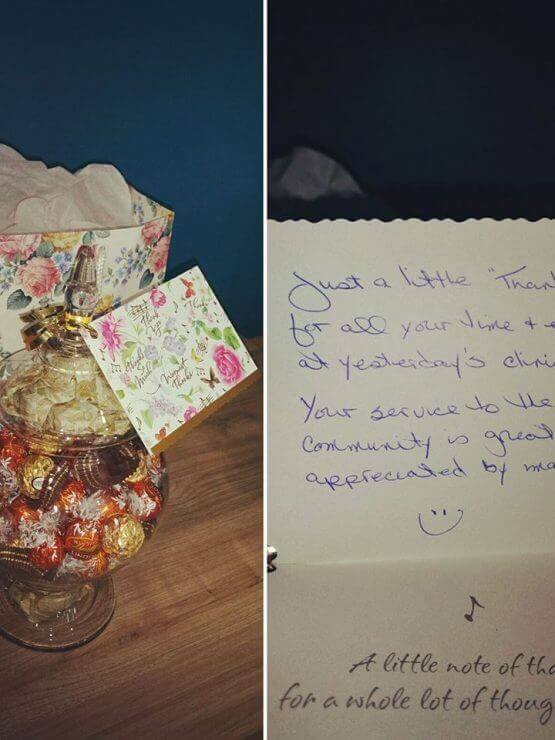 Thank
you
Much
Thanks
Just a little "Than
for all your time +
at yesterday's clini
Your service to the
community is great
appreciated by ma
A little note of tha
for a whole lot of thoug